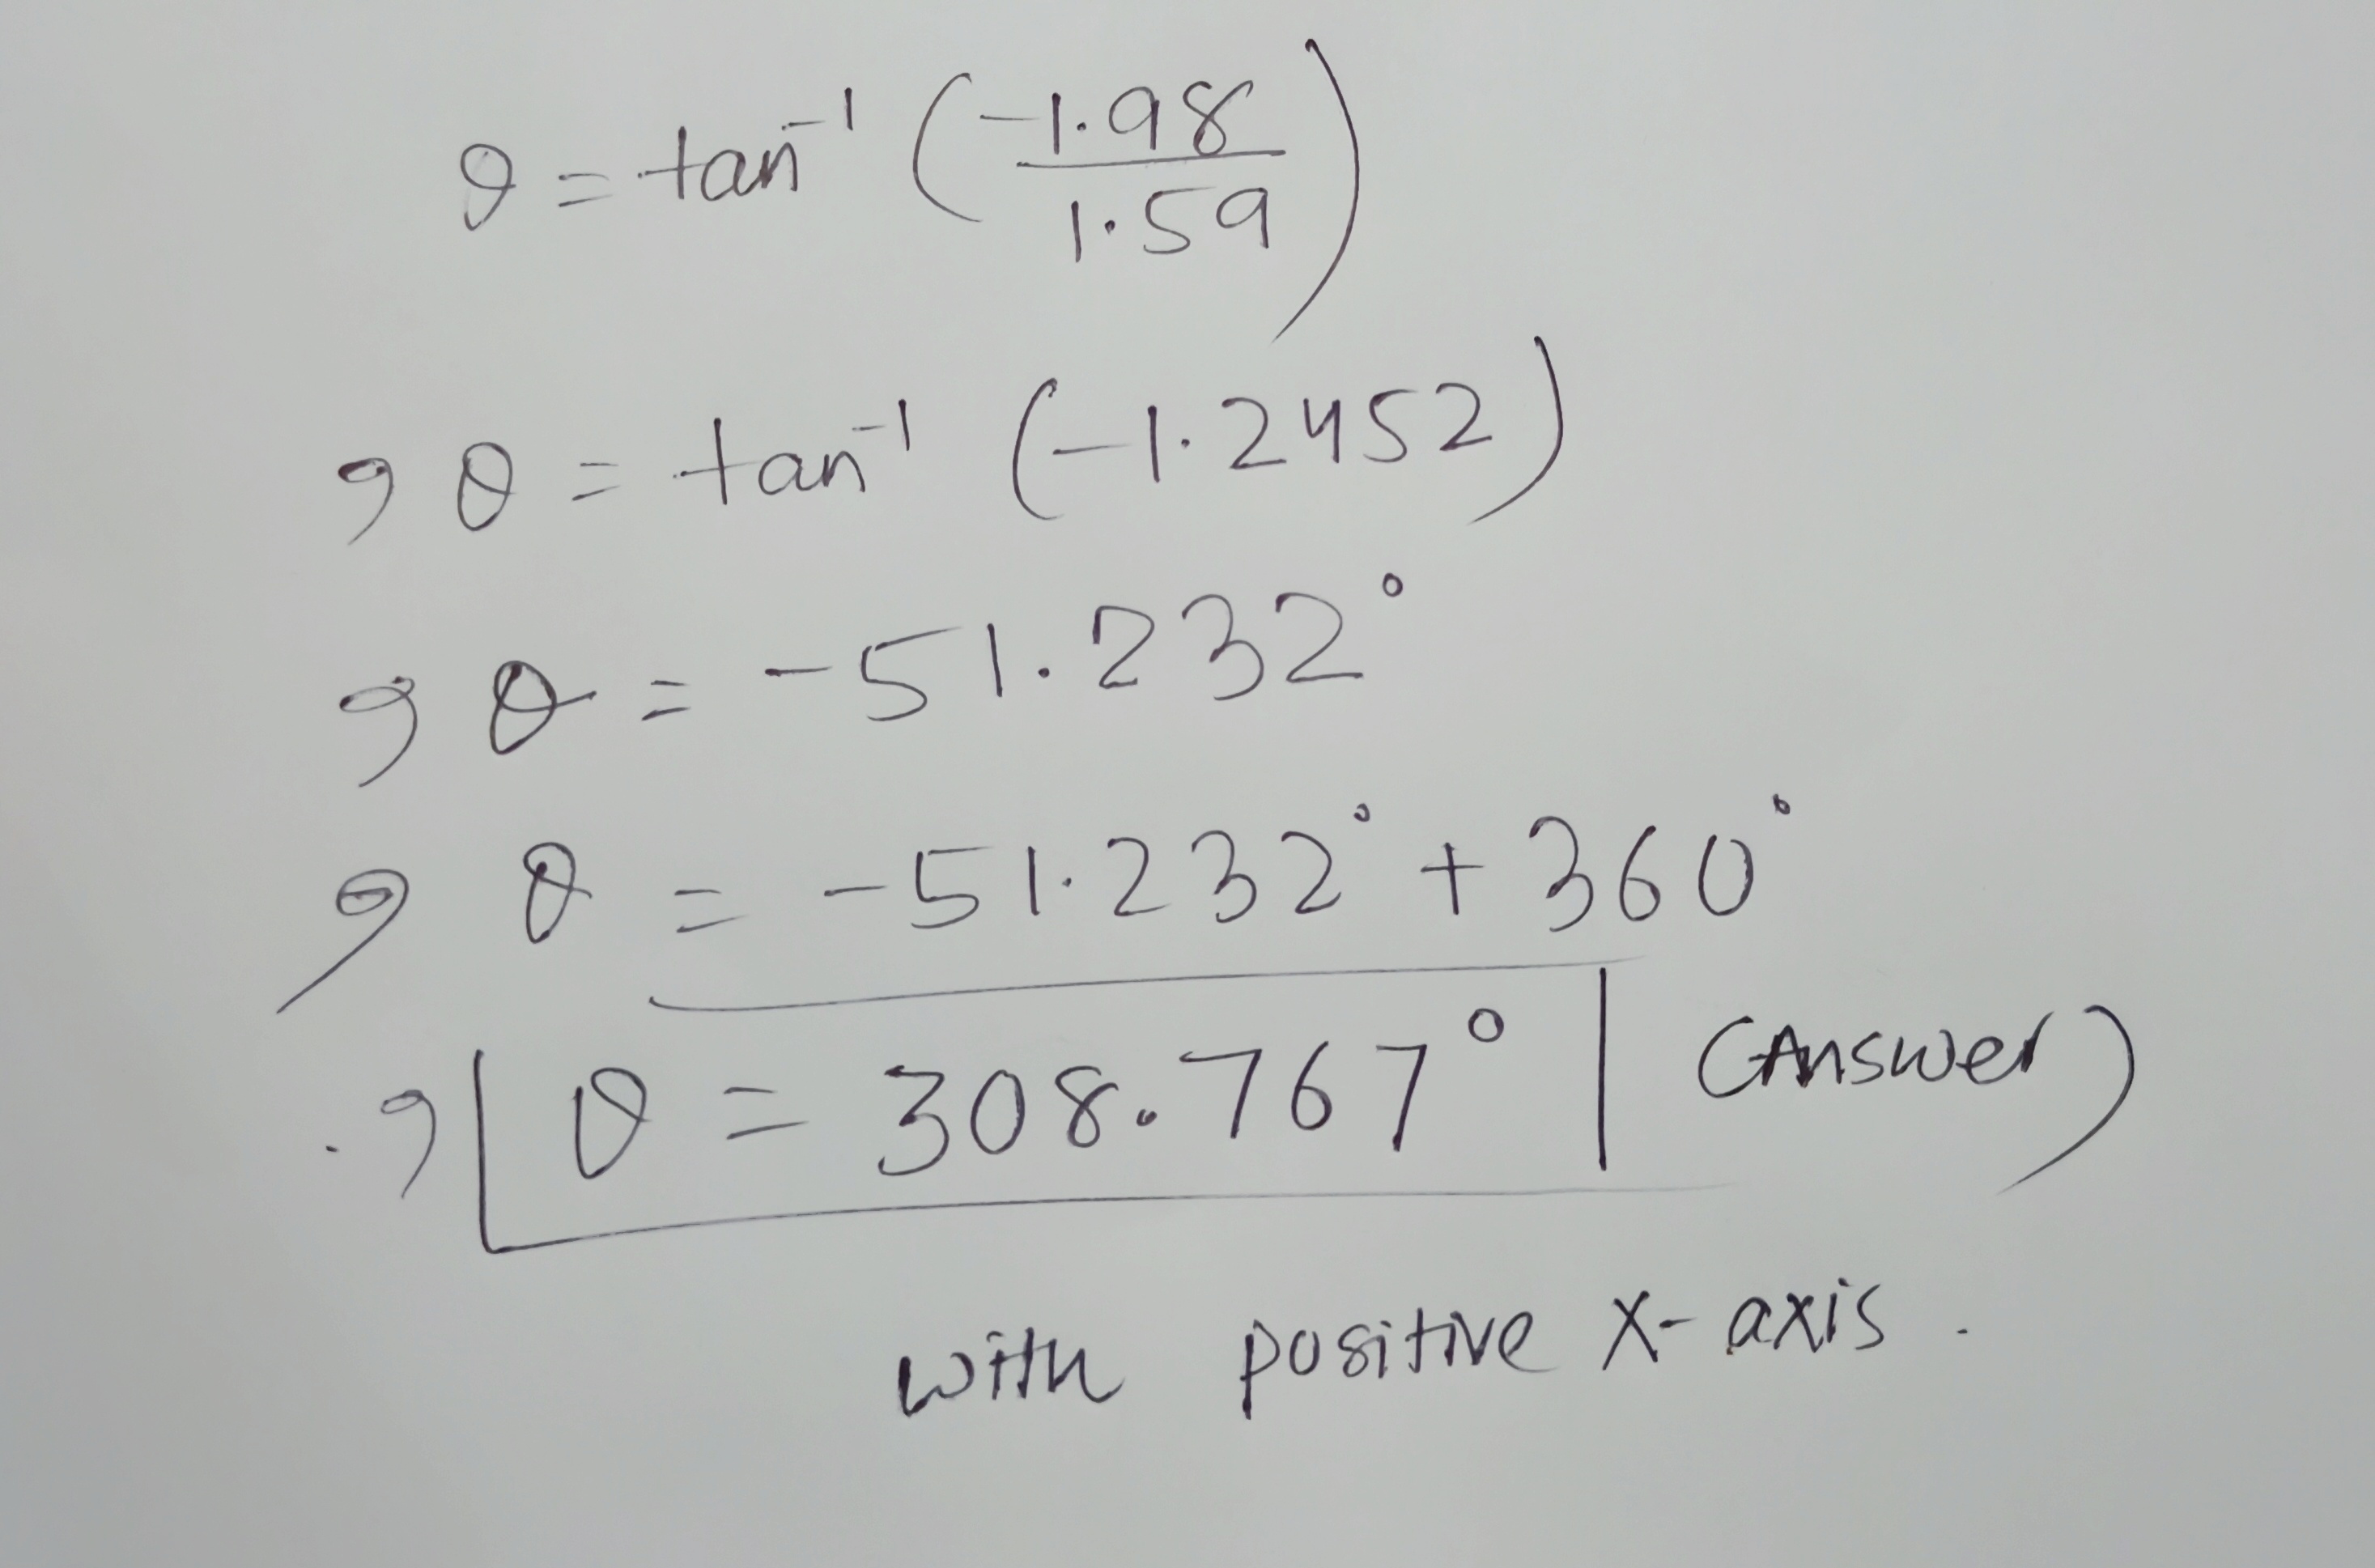 θ = tan⁻¹ (-1.98/1.59)
, θ = tan⁻¹ (-1.2452)
, θ = -51.232°
, θ = -51.232° + 360°
, θ = 308.767° (Answer)
with positive X-axis.